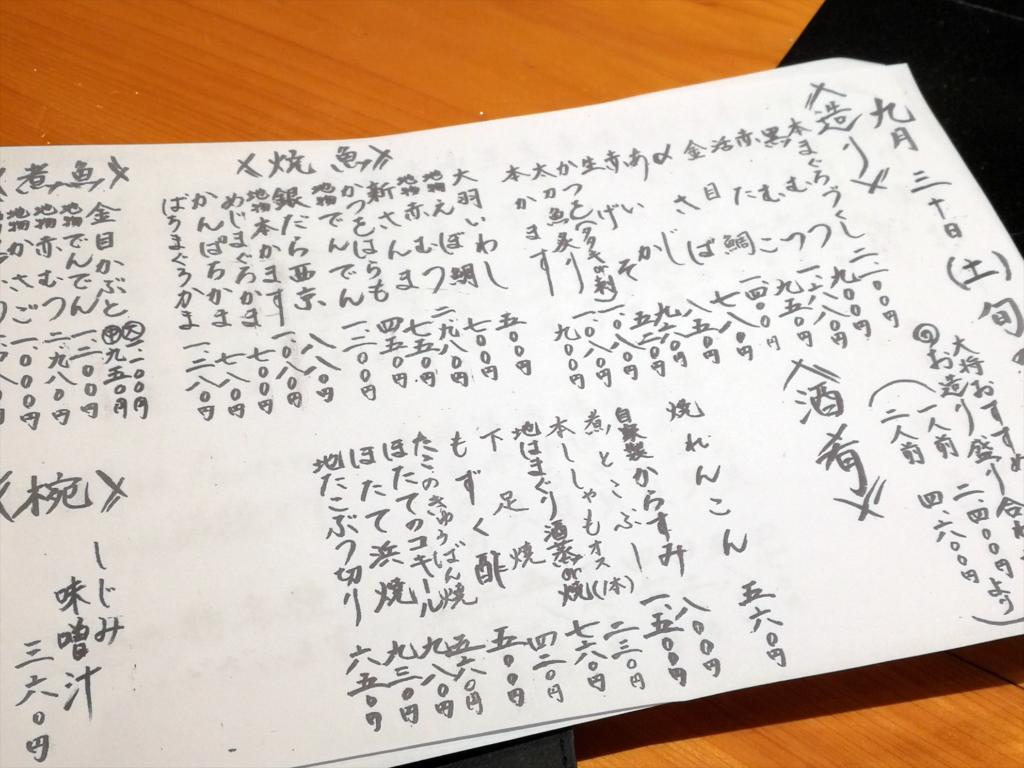 九月三十日(土)旬
大将おすすめ
のお造り盛り合わ
一人前 二.四〇〇円より
二人前 四.六〇〇円
《造り》
本まぐろづくし 二.二〇〇円
黒むつ
赤むつ
活たこ
金目鯛
〆さば
あじ
赤いか
生げそ
かつをタタキor刺
太刀魚炙り
本かます 九〇〇円
《酒肴》
焼れんこん 五六〇円
自家製からすみ 八〇〇円
煮とこぶし 一.五〇〇円
本ししゃもオス(1本) 二三〇円
地はまぐり酒蒸or焼 七六〇円
下足焼 四二〇円
もずく酢 五〇〇円
たこのきゅうばん焼 五六〇円
ほたてのコキール 九八〇円
ほたて浜焼 九三〇円
地たこぶつ切り 六五〇円
《焼魚》
大羽いわし 五〇〇円
地物えぼ鯛 七〇〇円
地物赤むつ 二.九八〇円
新さんま 七五〇円
かつをはらも 四五〇円
地物でんでん 一.二〇〇円
銀だら西京
地物本かます 一.〇八〇円
めじまぐろかま 七〇〇円
かんぱちかま 七八〇円
ばちまぐろかま 一.二八〇円
《煮魚》
金目かぶと 大 中九五〇円
地物でんでん 一.二〇〇円
地物赤むつ 二.九八〇円
地物かさご
《椀》
しじみ
味噌汁 三六〇円